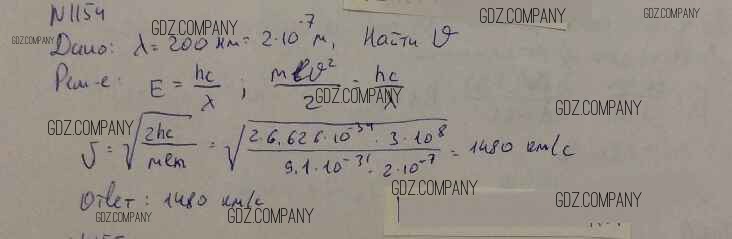 N1154
Дано: λ = 200 нм = 2·10⁻⁷ м, Найти υ
Реш-е: E = hc/λ ; mυ²/2 = hc/λ
υ = √(2hc/mλ) = √(2·6,626·10⁻³⁴·3·10⁸/9,1·10⁻³¹·2·10⁻⁷) = 1480 км/с
Ответ: 1480 км/с
GDZ.COMPANY
GDZ.COMPANY
GDZ.COMPANY
GDZ.COMPANY
GDZ.COMPANY
GDZ.COMPANY
GDZ.COMPANY
GDZ.COMPANY
GDZ.COMPANY
GDZ.COMPANY
GDZ.COMPANY
GDZ.COMPANY